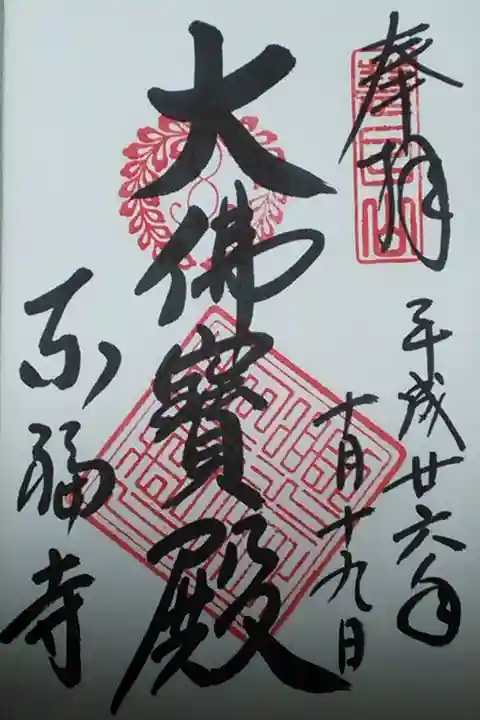 奉拝
平成廿六年
十月十九日
大佛寶殿
東福寺